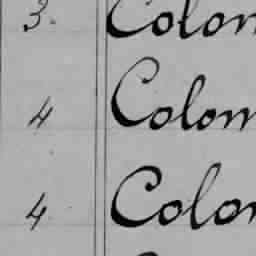 3. Colon
4 Colom
4 Colon